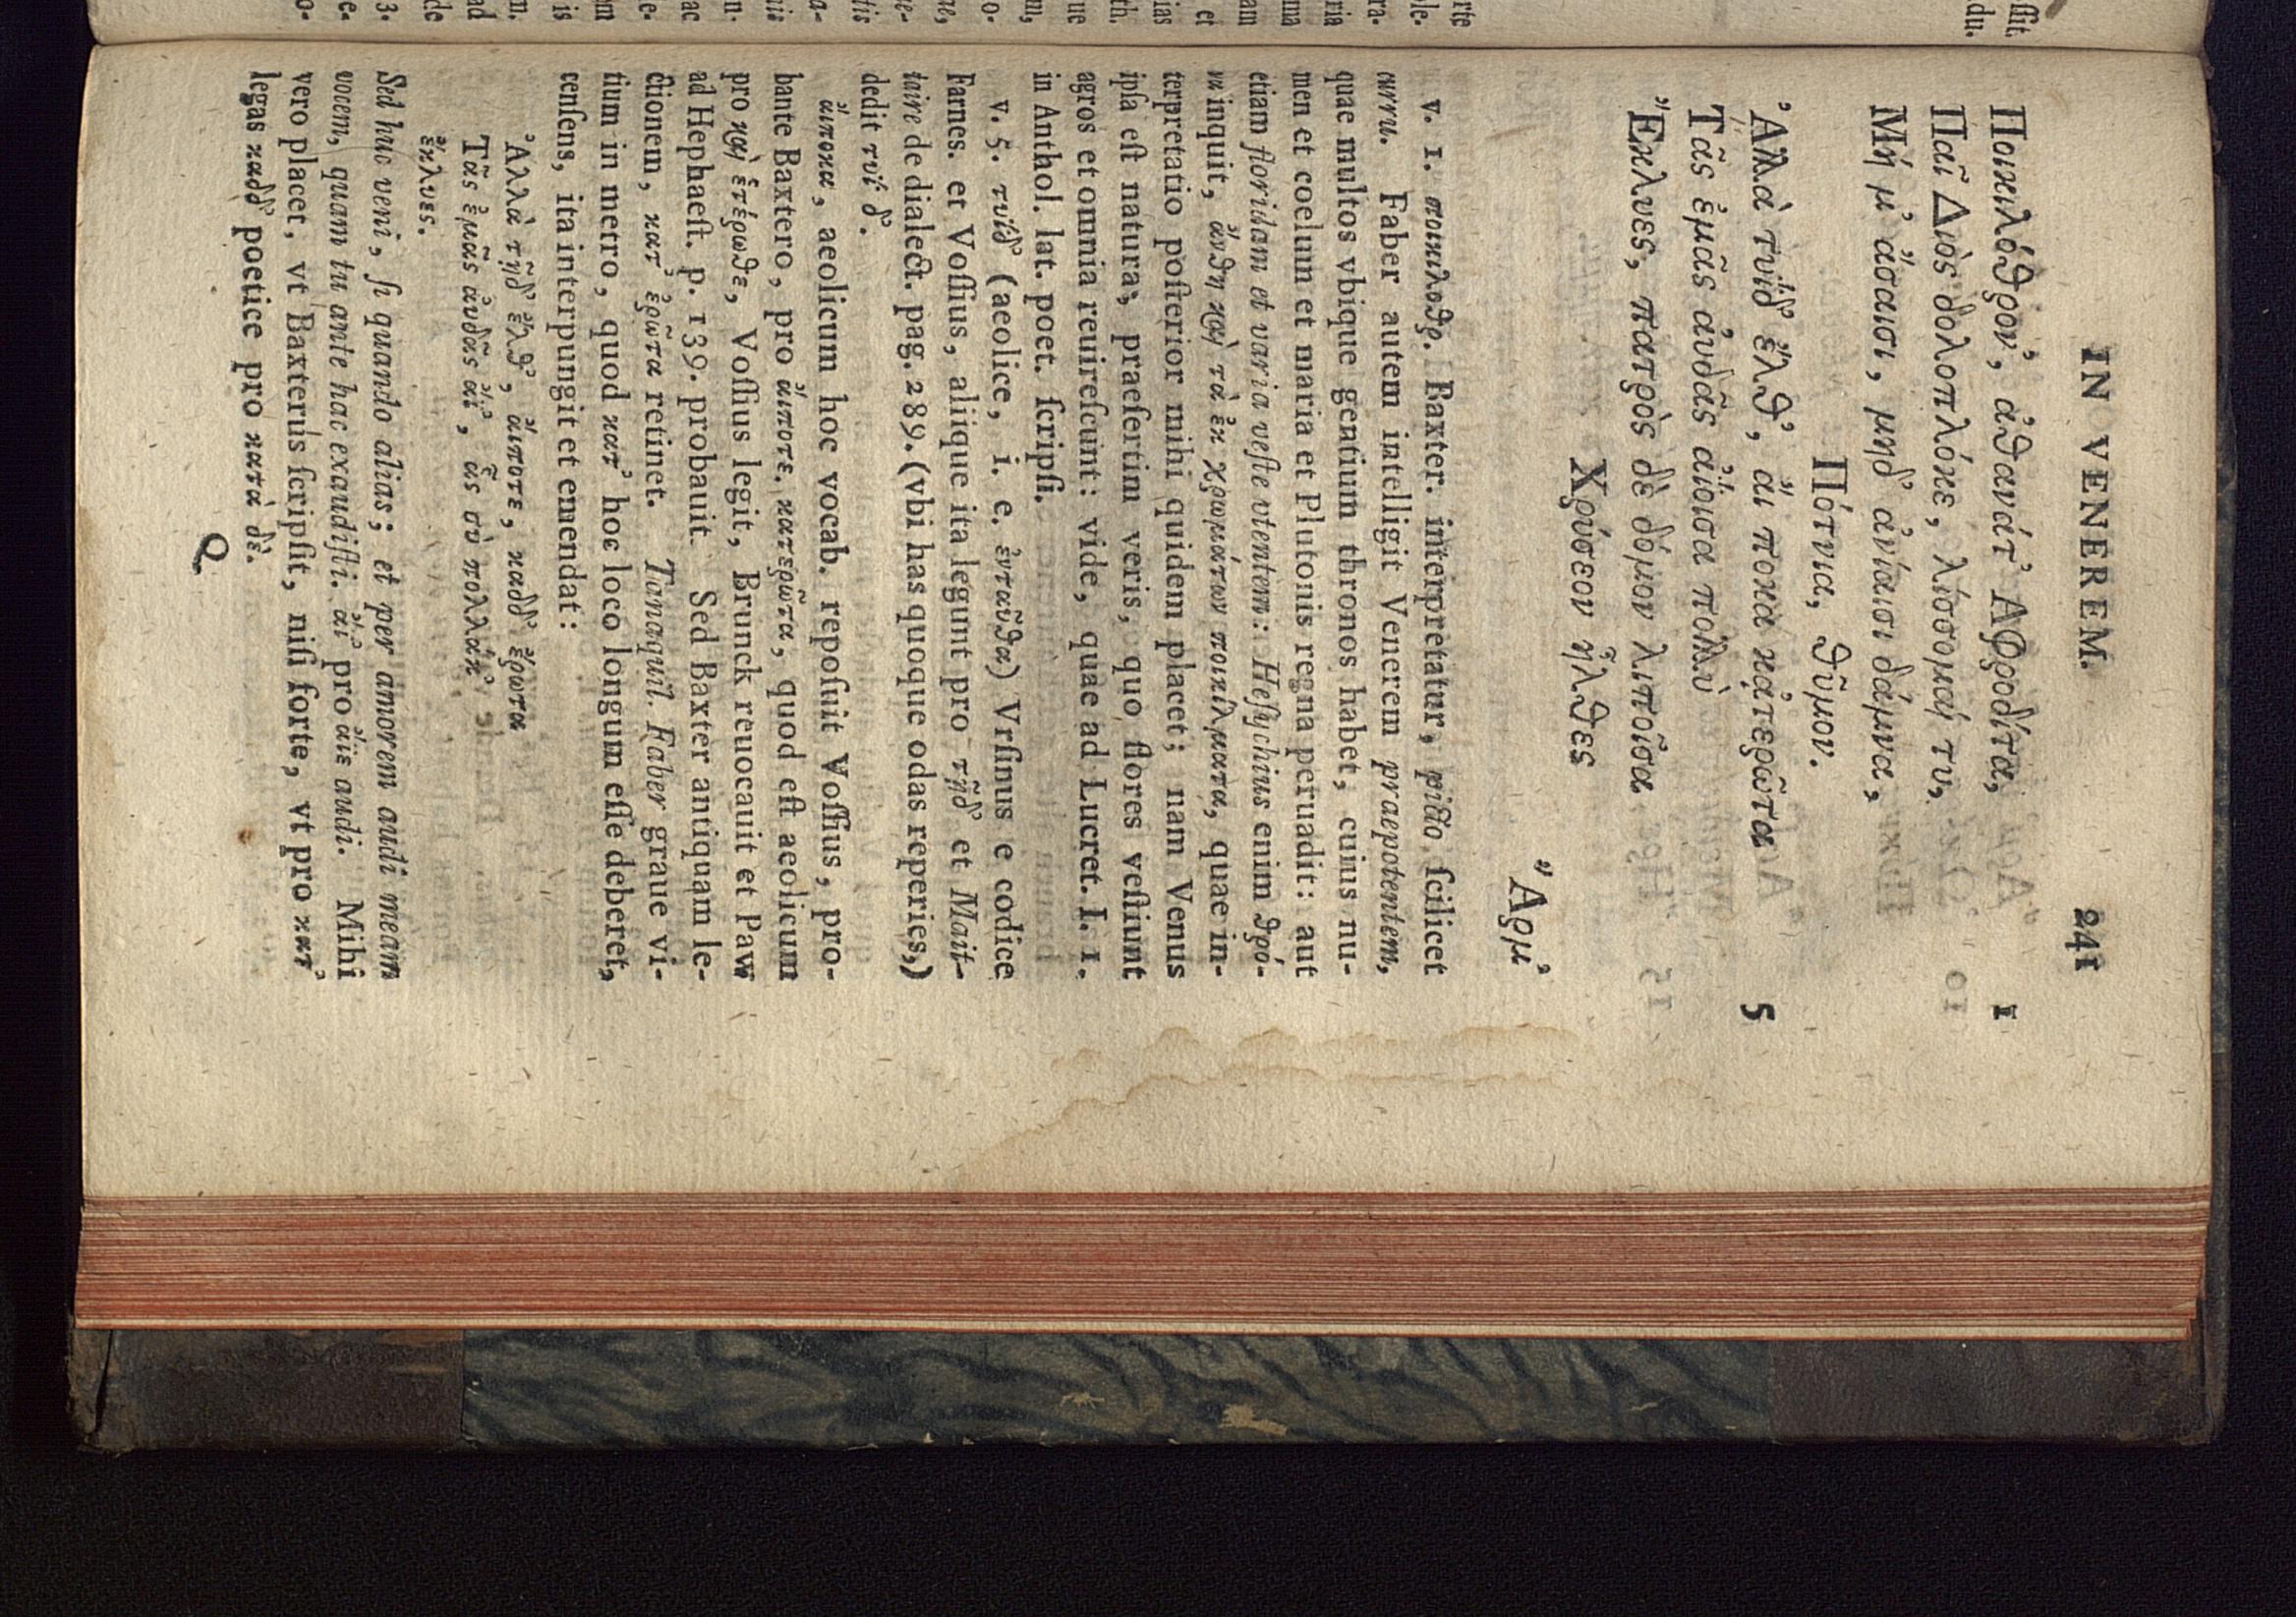 IN VENEREM. 241
Ποικιλόθρον᾽, ἀθανάτ᾽ Αφροδίτα, 1
Παῖ Διὸς δολοπλόκε, λίσσομαί τυ,
Μή μ᾽ ἄσαισι, μηδ᾽ ἀνίαισι δάμνα,
Πότνια, θῦμον.
Ἀλλὰ τυΐδ᾽ ἔλθ᾽, αἴ ποκα κᾀτερῶτα 5
Τᾶς ἐμᾶς αὐδᾶς ἀΐοισα πολλὺ
Ἔκλυες, πατρὸς δὲ δόμον λιποῖσα
Χρύσεον ἦλθες
Ἄρμ᾽
v. 1. ποικιλοθρ. Baxter. interpretatur, picto ſcilicet
curru. Faber autem intelligit Venerem praepotentem,
quae multos vbique gentium thronos habet, cuius nu-
men et coelum et maria et Plutonis regna peruadit: aut
etiam floridam et varia veſte vtentem: Heſychius enim θρό-
να inquit, ἄνθη καὶ τὰ ἐκ χρωμάτων ποικίλματα, quae in-
terpretatio poſterior mihi quidem placet; nam Venus
ipſa eſt natura, praeſertim veris, quo flores veſtiunt
agros et omnia reuireſcunt: vide, quae ad Lucret. I. 1.
in Anthol. lat. poet. ſcripſi.
v. 5. τυΐδ᾽ (aeolice, i. e. ἐνταῦθα) Vrſinus e codice
Farnes. et Voſſius, aliique ita legunt pro τῇδ᾽ et Mait-
taire de dialect. pag. 289. (vbi has quoque odas reperies,)
dedit τυΐ δ᾽.
αἴποκα, aeolicum hoc vocab. repoſuit Voſſius, pro-
bante Baxtero, pro αἴποτε. κατερῶτα, quod eſt aeolicum
pro καὶ ἑτέρωθε, Voſſius legit, Brunck reuocauit et Paw
ad Hephaeſt. p. 139. probauit. Sed Baxter antiquam le-
ctionem, κατ᾽ ἐρῶτα retinet. Tanaquil. Faber graue vi-
tium in metro, quod κατ᾽ hoc loco longum eſſe deberet,
cenſens, ita interpungit et emendat:
Ἀλλὰ τῇδ᾽ ἔλθ᾽, αἴποτε, καδδ᾽ ἔρωτα
Τᾶς ἐμᾶς αὐδᾶς ἄϊ᾽, ἇς σὺ πολλάκ᾽
ἔκλυες.
Sed huc veni, ſi quando alias; et per amorem audi meam
vocem, quam tu ante hac exaudiſti. ἄϊ᾽ pro ἄϊε audi. Mihi
vero placet, vt Baxterus ſcripſit, niſi forte, vt pro κατ᾽
legas καδδ᾽ poetice pro κατὰ δὲ.
Q